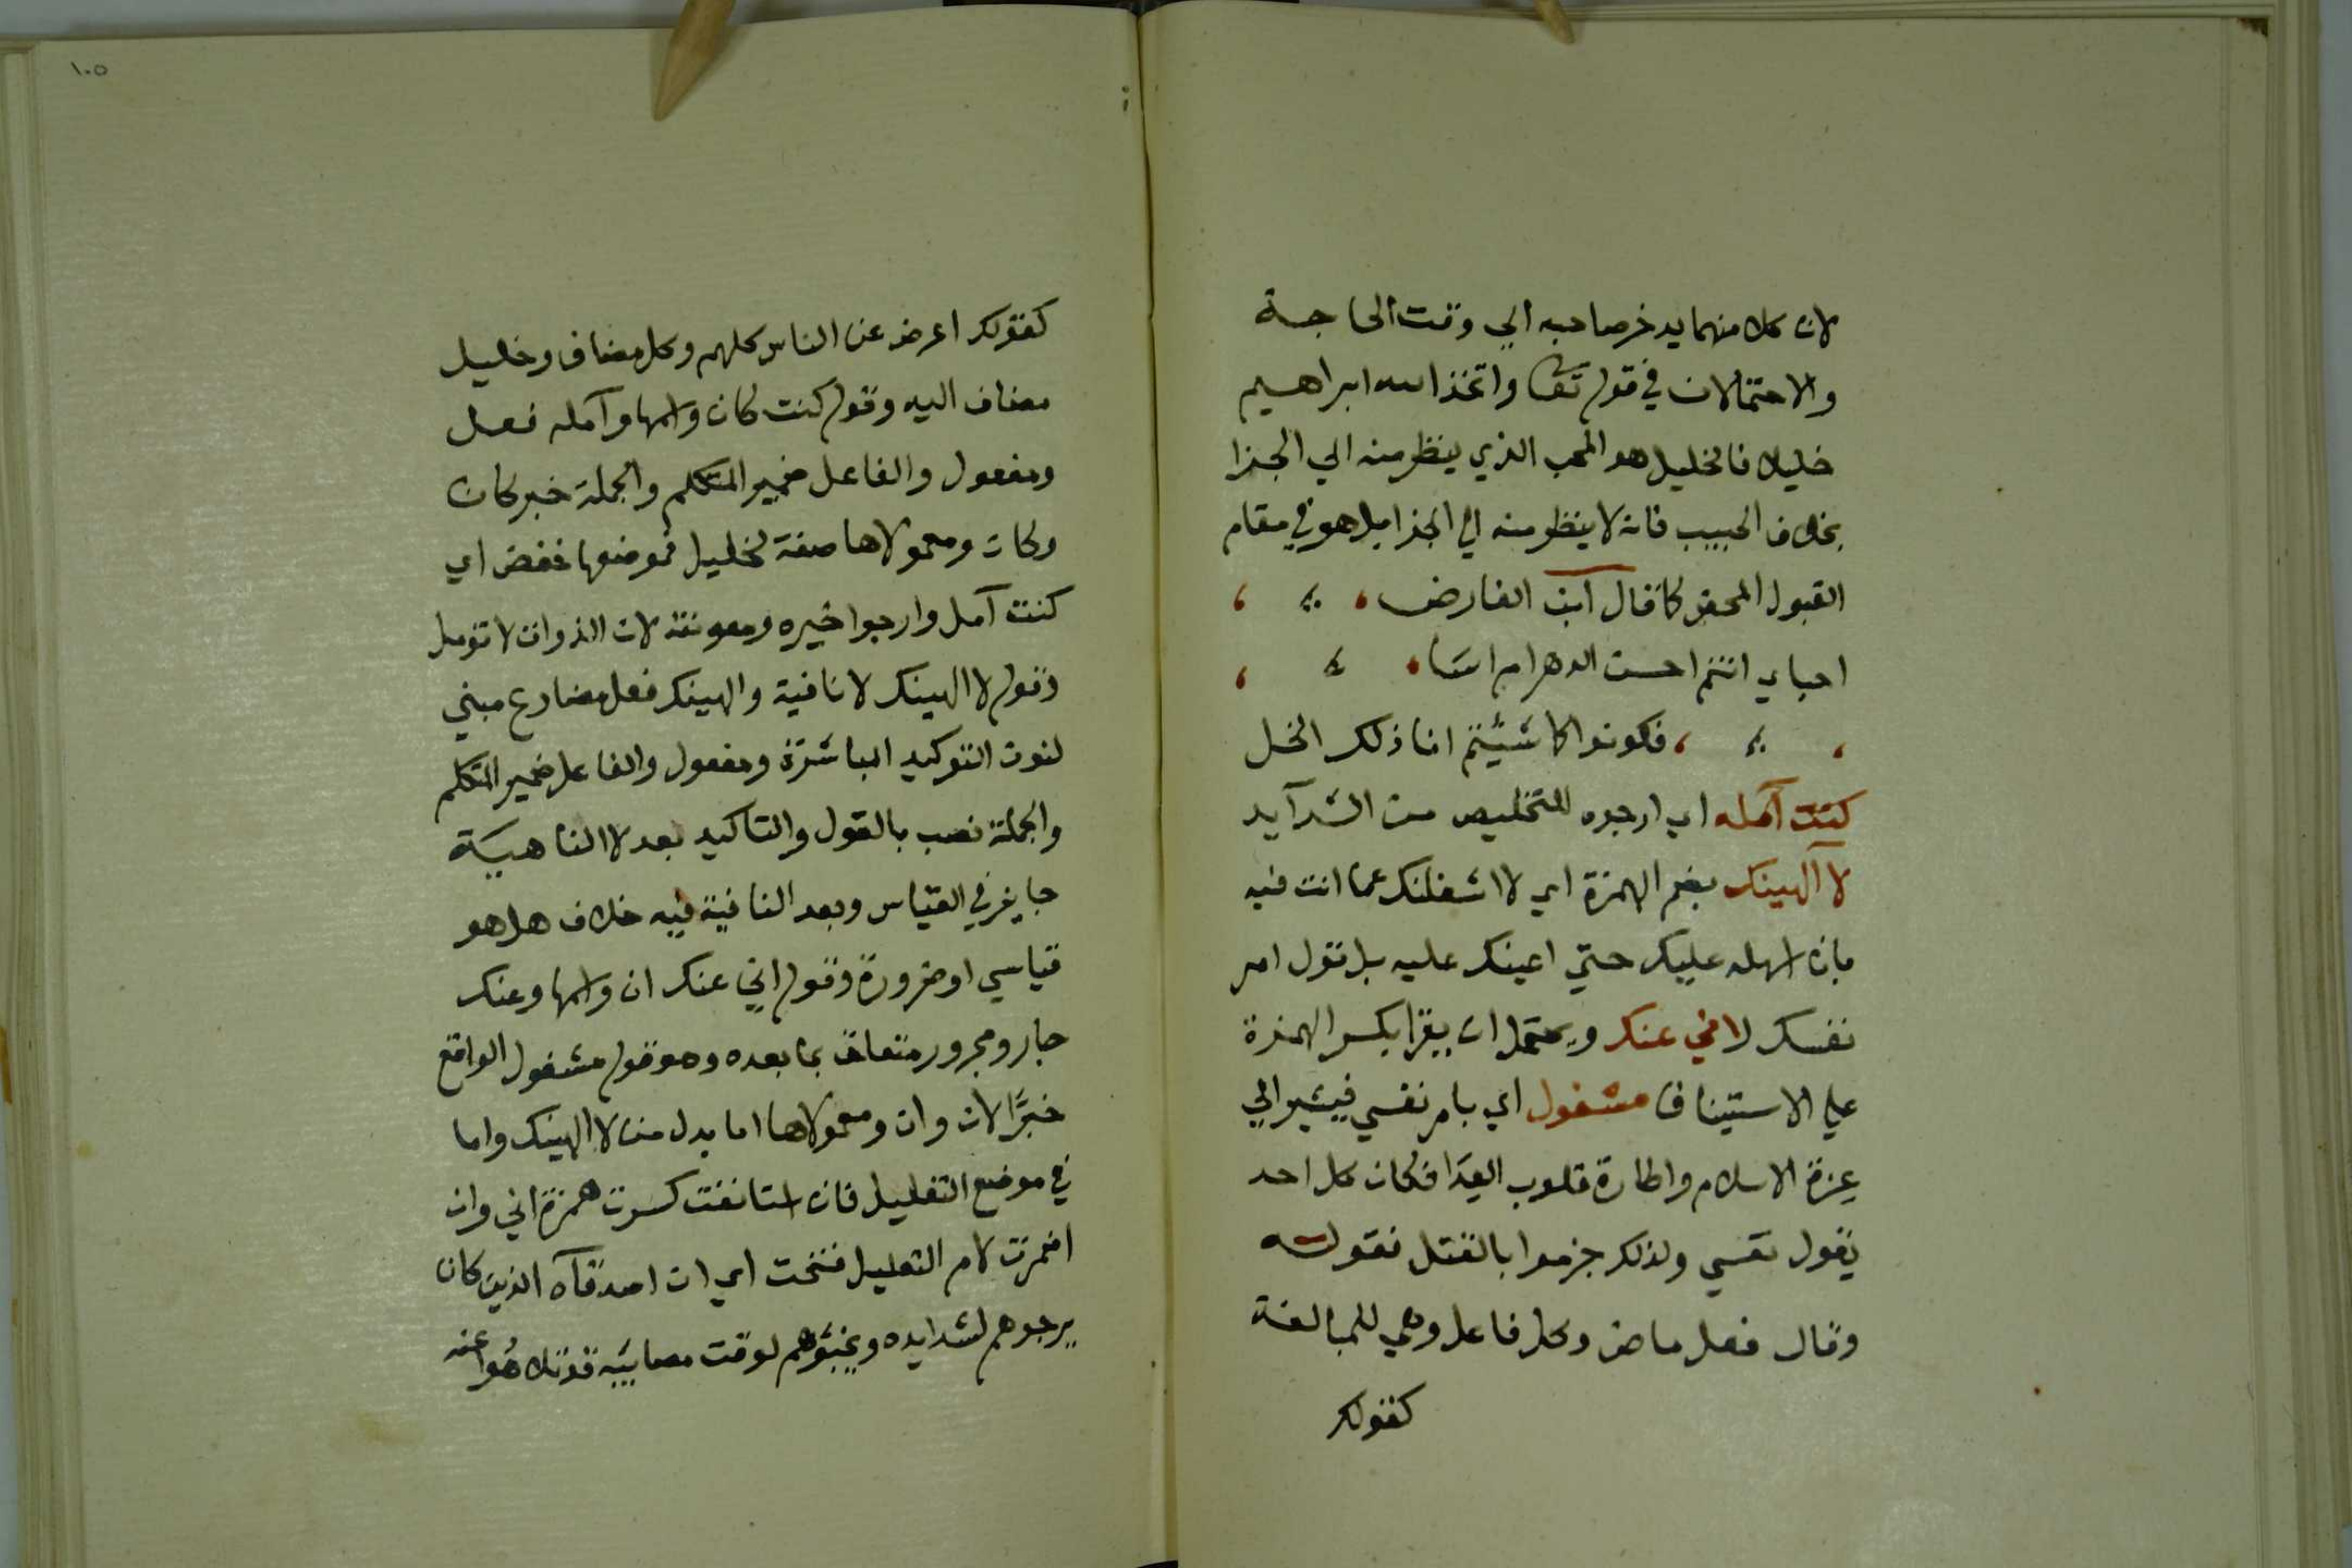 لان كلا منهما يدخر صاحبه الي وقت الحاجة
والاحتمالان في قوله تعا واتخذ الله ابراهيم
خليلا فالخليل هو المحب الذي ينظر منه الي الجزا
بخلاف الحبيب فانه لا ينظر منه الي الجزا بل هو في مقام
القبول المحض كما قال ابن الفارض
احباي انتم احسن الدهر ام اسا
فكونوا كما شئتم انا ذلك الخل
كنت آمله اي ارجوه للتخليص من الشدآيد
لا آلهينك بضم الهمزة اي لا اشغلنك عما انت فيه
بان اسهله عليك حتي اعينك عليه بل تول امر
نفسك لاني عنك ويحتمل ان يقرا بكسر الهمزة
علي الاستيناف مشغول اي بامر نفسي فيشير الي
عزة الاسلام واطارة قلوب العدا فكان كل احد
يقول نفسي ولذلك جزموا بالقتل فقوله
وقال فعل ماض وكل فاعل وهي للمبالغة
كقولك
١٠٥
كقولك اعرض عن الناس كلهم وكل مضاف وخليل
مضاف اليه وقوله كنت كان واسمها وآمله فعل
ومفعول والفاعل ضمير المتكلم والجملة خبر كان
وكان ومعمولاها صفة لخليل فموضعها خفض اي
كنت آمل وارجوا خيره ومعونته لان الذوات لا تؤمل
وقوله لا الهينك لا نافية والهينك فعل مضارع مبني
لنون التوكيد المباشرة ومفعول والفاعل ضمير المتكلم
والجملة نصب بالقول والتاكيد بعد لا الناهية
جايز في القياس وبعد النافية فيه خلاف هل هو
قياسي او ضرورة وقوله اني عنك ان واسمها وعنك
جار ومجرور متعلق بما بعده وهو قوله مشغول الواقع
خبرًا لان وان ومعمولاها اما بدل من لا الهينك واما
في موضع التعليل فان استانفت كسرت همزة اني وان
اضمرت لام التعليل فتحت اي ان اصدقآه الذين كان
يرجوهم لشدايده ويخبؤهم لوقت مصائبه قد تلاهوا عنه